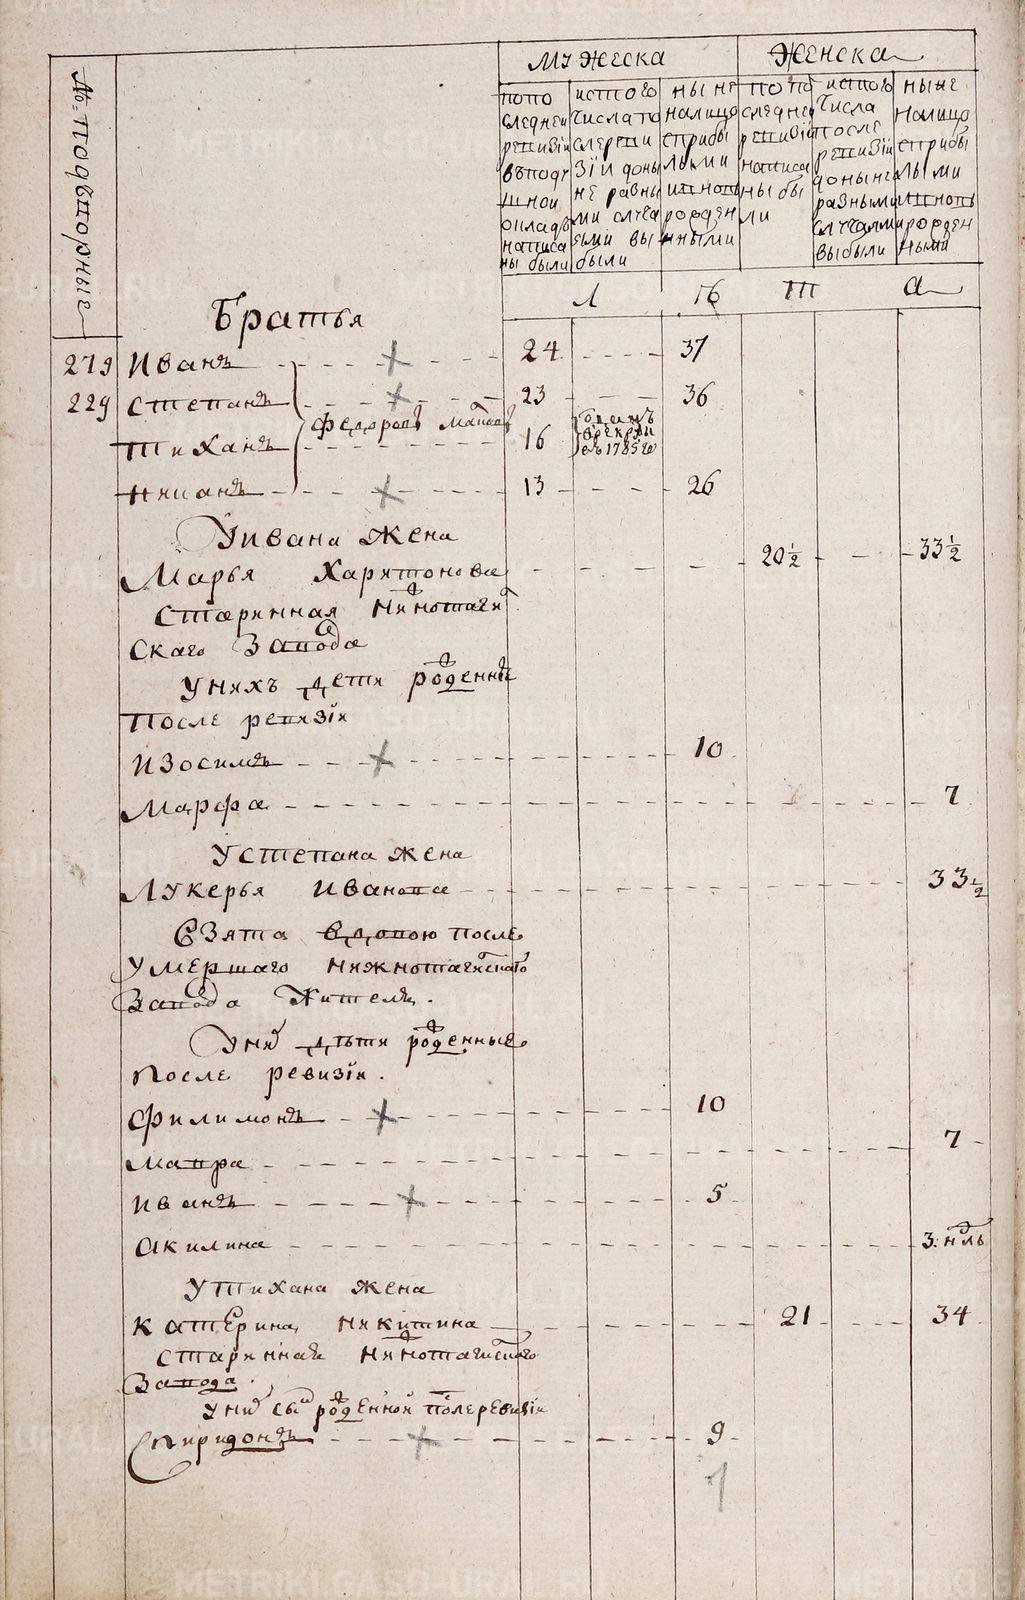 METRIKI.GASO-URAL.RU
№ Подворные
Мужеска
Женска
по по
следней
ревизiи
в поду
шной
окладъ
написа
ны были
ис того
числа по
сле реви
зiи доны
не разны
ми случа
ями вы
были
ныне
налицо
с прибы
лыми
и вновь
рожден
ными
по по
следней
ревизiи
написа
ны бы
ли
ис того
числа
после
ревизiи
доныне
разными
случаями
выбыли
ныне
налицо
с прибы
лыми
и вновь
рожден
ными
Л е т а
Братья
279 Иванъ 24 37
229 Степанъ 23 36
Федоровъ
Тиханъ 16 1785
13 26
У Ивана жена
Марья Харитонова 20½ 33½
Старинная Нижнотагил
скаго завода
У них дети рожденые
После ревизiи
Изосимъ 10
Марфа 7
У Степана жена
Лукерья Иванова 33½
Взята вдовою после
Умершаго Нижнотагилскаго
Завода Жителя.
У них дети рожденные
После ревизiи.
Филимонъ 10
Мавра 7
Иванъ 5
Акилина 3. нѣль
У Тихана жена
Катерина Никитина 21 34
Старинная Нижнотагилскаго
Завода.
У них сын рожденной после ревизiи
Спиридонъ 9
7